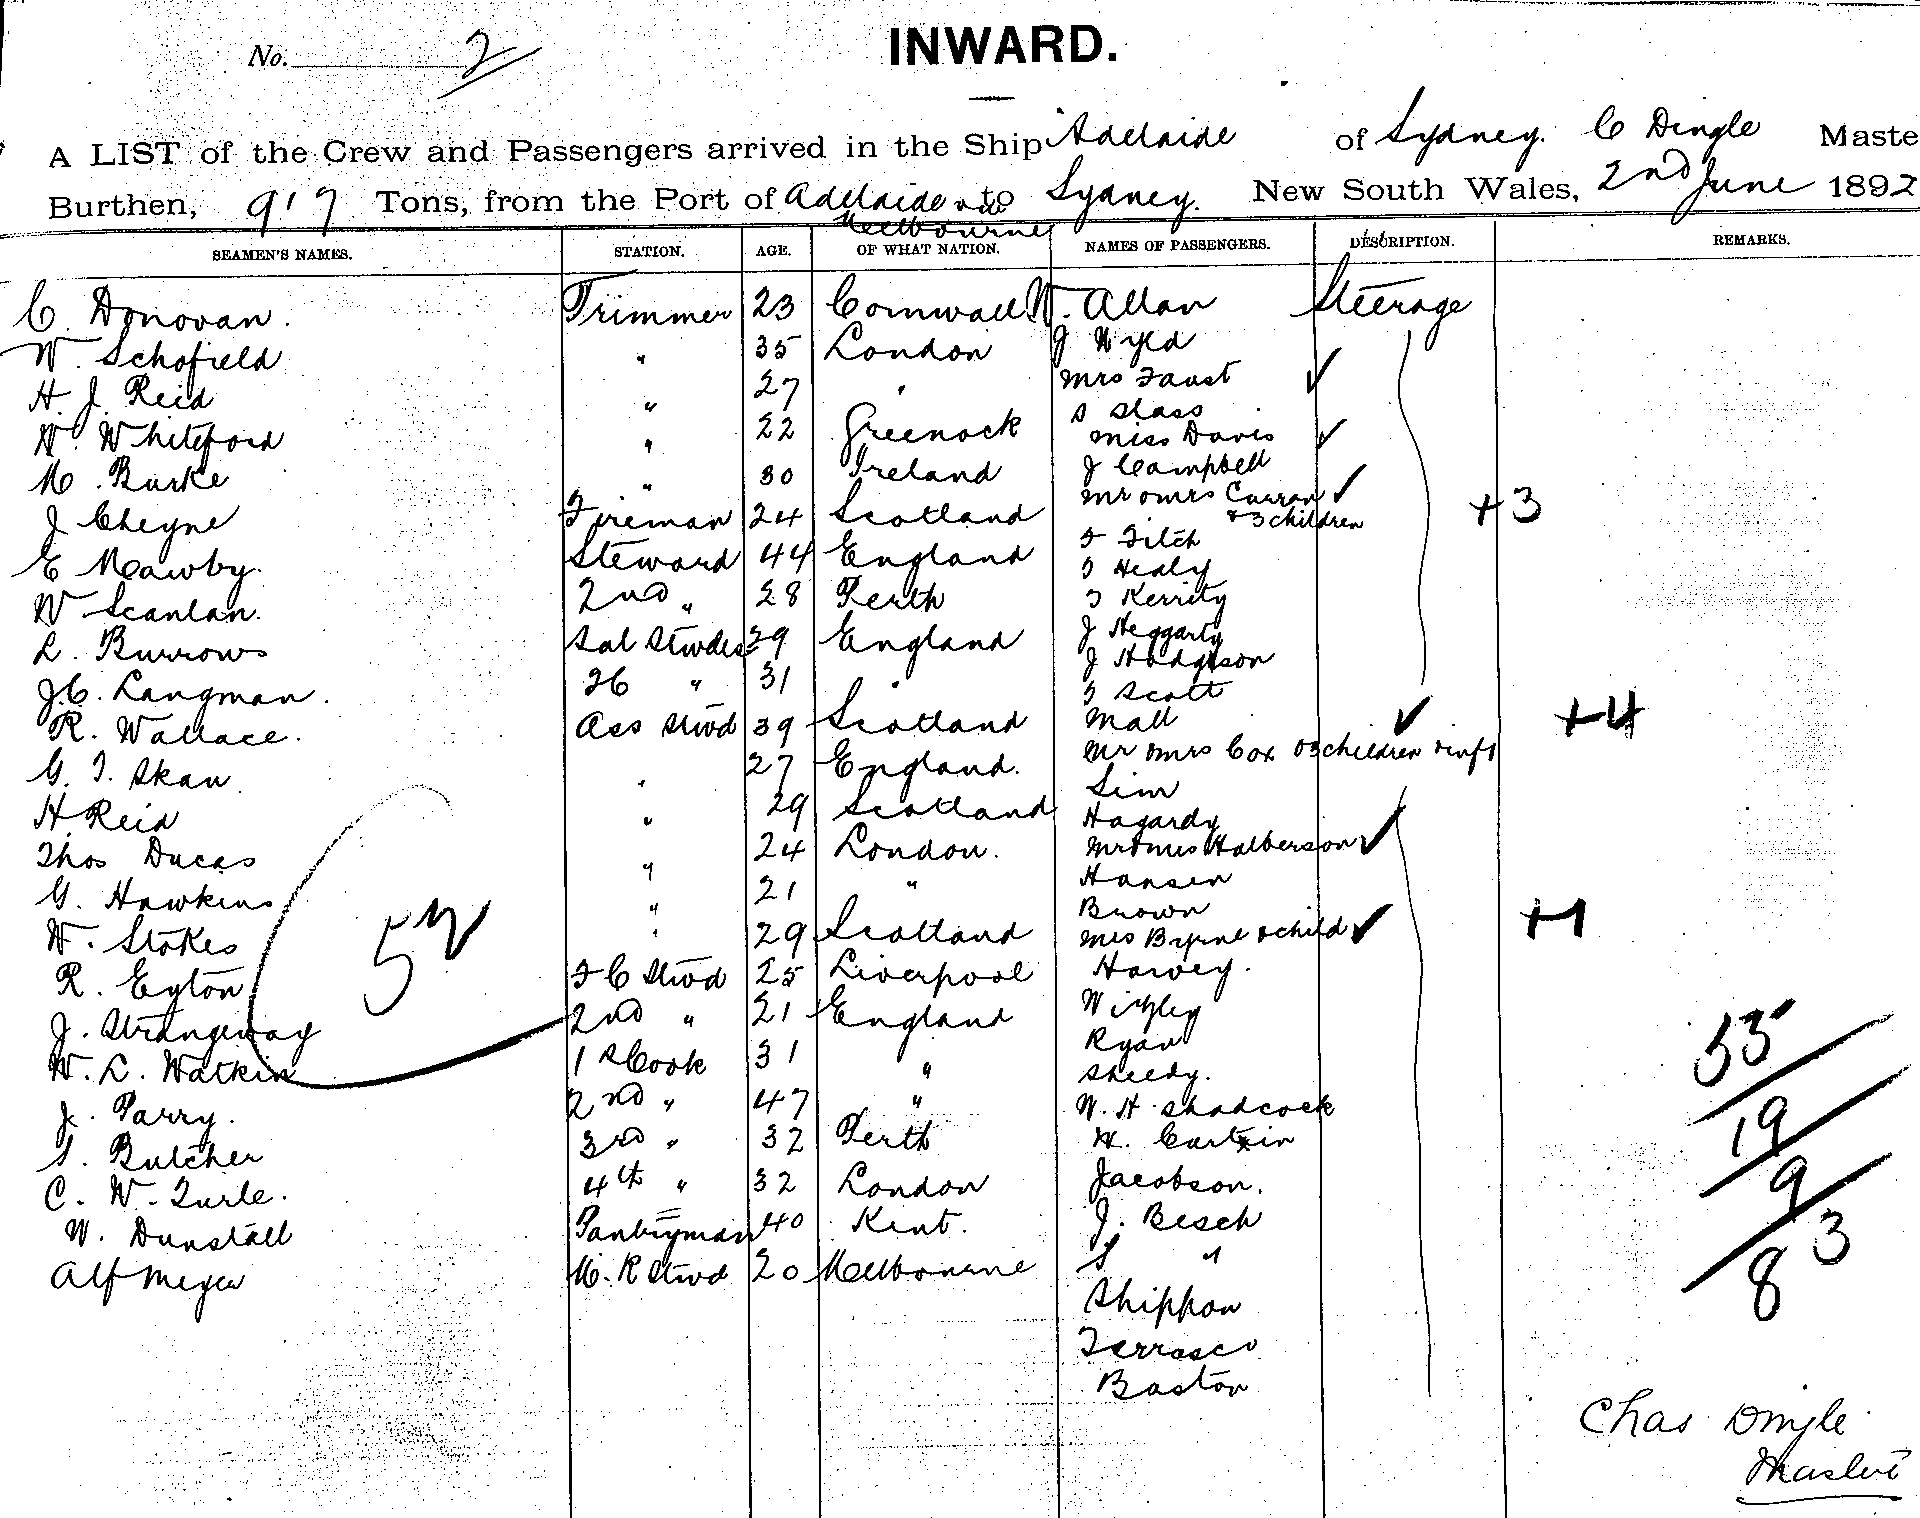 No. 2
INWARD.
A LIST of the Crew and Passengers arrived in the Ship Adelaide of Sydney. C Dingle Maste
Burthen, 917 Tons, from the Port of Adelaide via Melbourne to Sydney. New South Wales, 2nd June 1892
SEAMEN'S NAMES. STATION. AGE. OF WHAT NATION. NAMES OF PASSENGERS. DESCRIPTION. REMARKS.
C. Donovan. Trimmer 23 Cornwall W. Allan Steerage
W. Schofield " 35 London J Wyld
H. J. Reid " 27 " Mrs Faust ✓
S Slass
W. Whiteford " 22 Greenock Miss Davis ✓
M. Burke " 30 Ireland J Campbell
Mr & Mrs Curran ✓ +3
& 3 children
J Cheyne Fireman 24 Scotland F Fitch
E Mawby. Steward 44 England T Healy
W Scanlan. 2nd " 28 Perth T Kerrity
L. Burrows Sal Stwdes 29 England J Heggarty
J Hodgson
J.C. Langman. F C " 31 " T Scott
R. Wallace. Ass Stwd 39 Scotland Mall ✓ +4
Mr & Mrs Cox & 3 children & inft
G. T. Skan " 27 England. Sim
H. Reid " 29 Scotland Hagardy
Thos Ducas " 24 London. Mr & Mrs Halberson ✓
G. Hawkins " 21 " Hansen
Brown
W. Stokes " 29 Scotland Mrs Byrne & child ✓ +1
R. Eyton F C Stwd 25 Liverpool Harvey.
J. Strangeway 2nd " 21 England Wigley
W. L. Watkin 1 S Cook 31 " Ryan
Sheedy.
J. Parry. 2nd " 47 " W. H. Shadcock
S. Butcher 3rd " 32 Perth W. Curtain
C. W. Turle. 4th " 32 London Jacobson.
W. Dunstall Pantryman 40 Kent. J. Besch
Alf Meyer M. R Stwd 20 Melbourne S "
Shippon
Terrasco
Baston
52
53
19
9
83
Chas Dingle
Master